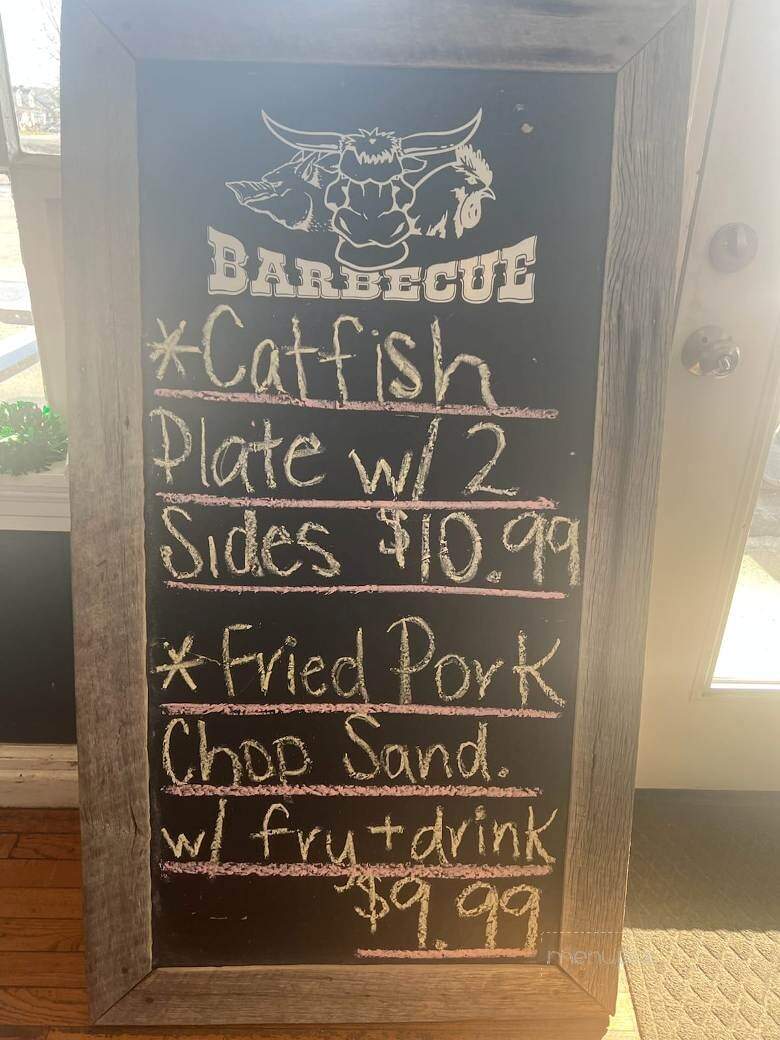 BARBECUE
*Catfish
Plate w/ 2
Sides $10.99
*Fried Pork
Chop Sand.
w/ fry+drink
$9.99